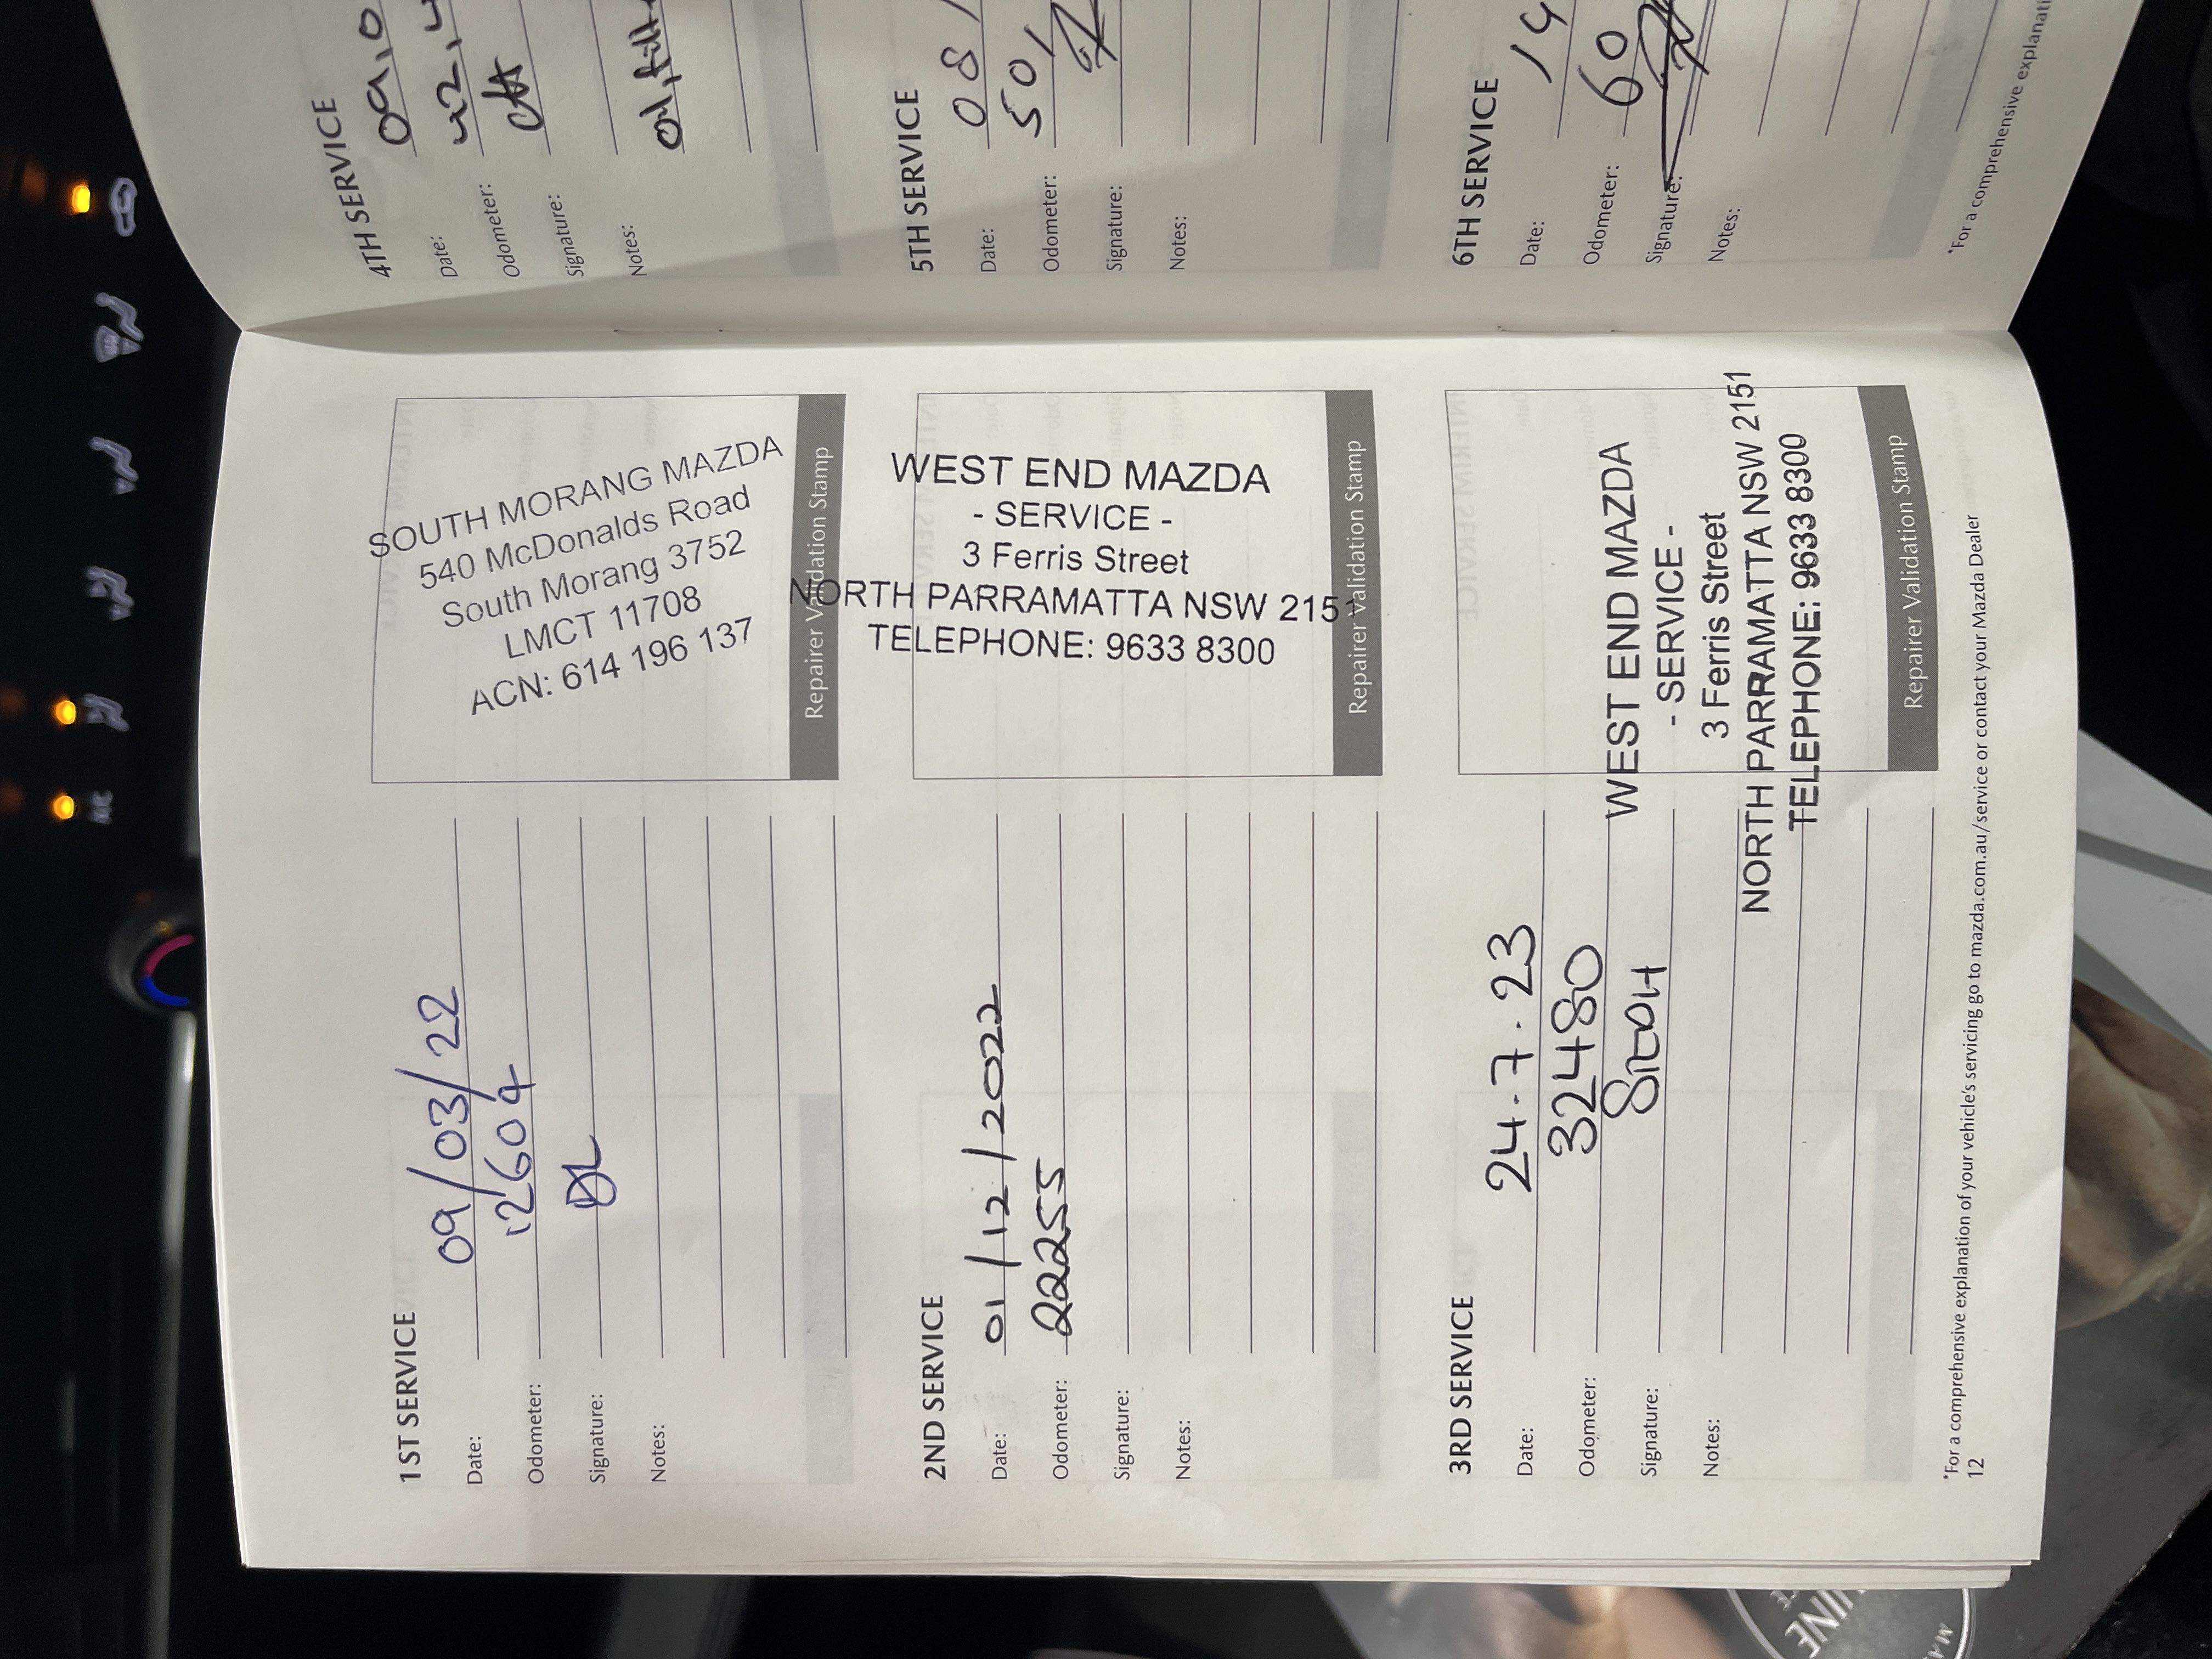 1ST SERVICE
Date: 09/03/22
Odometer: 12604
Signature: DL
Notes:
SOUTH MORANG MAZDA
540 McDonalds Road
South Morang 3752
LMCT 11708
ACN: 614 196 137
Repairer Validation Stamp
2ND SERVICE
Date: 01/12/2022
Odometer: 22255
Signature:
Notes:
WEST END MAZDA
- SERVICE -
3 Ferris Street
NORTH PARRAMATTA NSW 2151
TELEPHONE: 9633 8300
Repairer Validation Stamp
3RD SERVICE
Date: 24.7.23
Odometer: 32480
Signature:
Notes:
WEST END MAZDA
- SERVICE -
3 Ferris Street
NORTH PARRAMATTA NSW 2151
TELEPHONE: 9633 8300
Repairer Validation Stamp
*For a comprehensive explanation of your vehicle's servicing go to mazda.com.au/service or contact your Mazda Dealer
12
4TH SERVICE
Date: 09,0
Odometer: 42,4
Signature:
Notes: oil, filt
5TH SERVICE
Date: 08/
Odometer: 50,
Signature:
Notes:
6TH SERVICE
Date: 14
Odometer: 60
Signature:
Notes:
*For a comprehensive explanati